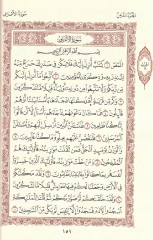 الجزء الثامن
سورة الأعراف
سورة الأعراف
بسم الله الرحمن الرحيم
المص ١ كتاب أنزل إليك فلا يكن في صدرك حرج منه
لتنذر به وذكرى للمؤمنين ٢ اتبعوا ما أنزل إليكم
من ربكم ولا تتبعوا من دونه أولياء قليلا ما تذكرون ٣
وكم من قرية أهلكناها فجاءها بأسنا بياتا أو هم قائلون ٤
فما كان دعواهم إذ جاءهم بأسنا إلا أن قالوا إنا كنا
ظالمين ٥ فلنسألن الذين أرسل إليهم ولنسألن المرسلين ٦
فلنقصن عليهم بعلم وما كنا غائبين ٧ والوزن يومئذ
الحق فمن ثقلت موازينه فأولئك هم المفلحون ٨
ومن خفت موازينه فأولئك الذين خسروا أنفسهم بما
كانوا بآياتنا يظلمون ٩ ولقد مكناكم في
الأرض وجعلنا لكم فيها معايش قليلا ما تشكرون ١٠
ولقد خلقناكم ثم صورناكم ثم قلنا للملائكة اسجدوا
لآدم فسجدوا إلا إبليس لم يكن من الساجدين ١١
١٥١